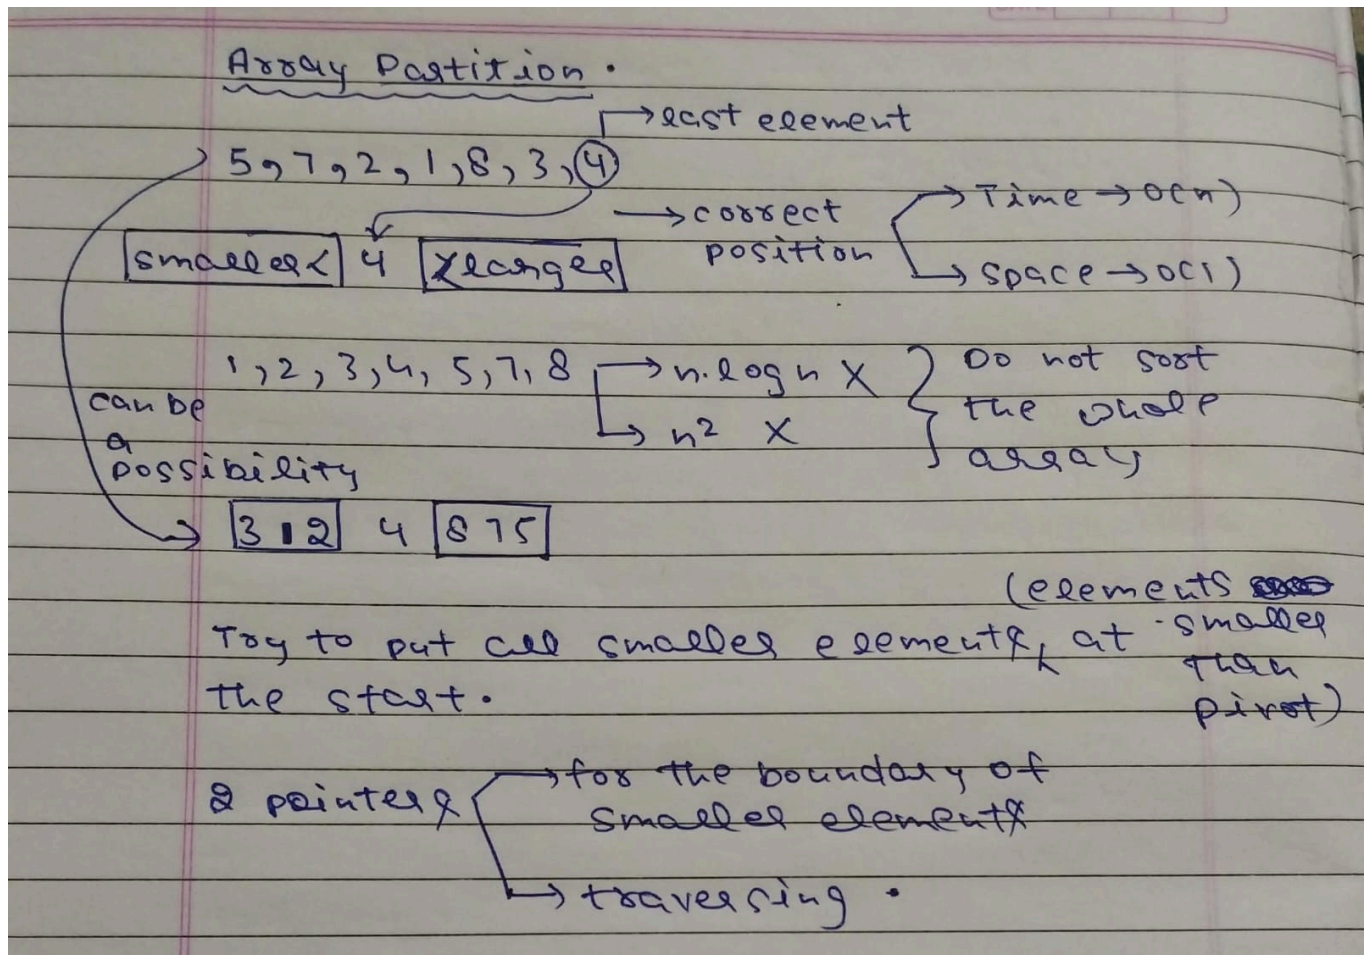 Array Partition.
→ last element
5, 7, 2, 1, 8, 3, 4
→ correct position
→ Time → O(n)
→ space → O(1)
smaller< 4 >larger
1, 2, 3, 4, 5, 7, 8
→ n.log n X
→ n2 X
Do not sort
the whole
array
can be
a
possibility
3 1 2 4 8 7 5
(elements
smaller
than
pivot)
Try to put all smaller elements, at
the start.
2 pointers
→ for the boundary of
smaller elements
→ traversing.